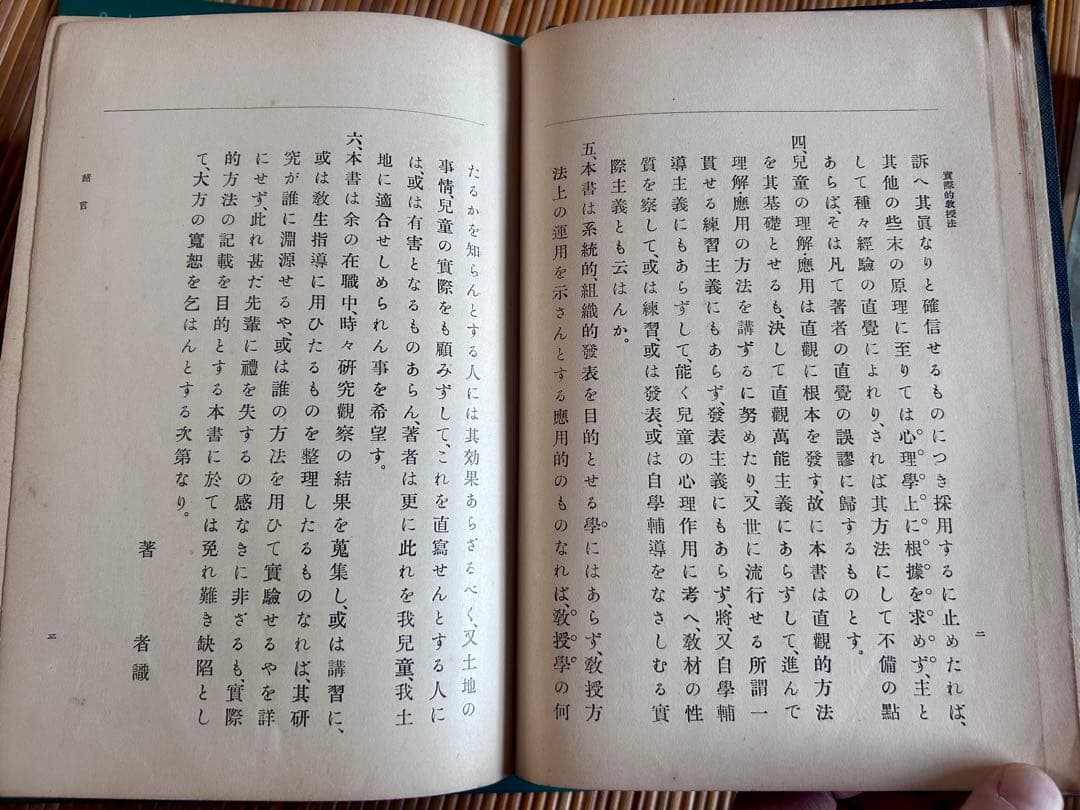 實際的敎授法
二
訴へ其眞なりと確信せるものにつき採用するに止めたれば、
其他の些末の原理に至りては心理學上に根據を求めず、主と
して種々經驗の直覺によれり、されば其方法にして不備の點
あらば、そは凡て著者の直覺の誤謬に歸するものとす。
四、兒童の理解應用は直觀に根本を發す、故に本書は直觀的方法
を其基礎とせるも、決して直觀萬能主義にあらずして、進んで
理解、應用の方法を講ずるに努めたり、又世に流行せる所謂一
貫せる練習主義にもあらず、發表主義にもあらず、將、又自學輔
導主義にもあらずして、能く兒童の心理作用に考へ、敎材の性
質を察して、或は練習、或は發表、或は自學輔導をなさしむる實
際主義とも云はんか。
五、本書は系統的、組織的發表を目的とせる學にはあらず、敎授方
法上の運用を示さんとする應用的のものなれば、敎授學の何
たるかを知らんとする人には其効果あらざるべく、又土地の
事情、兒童の實際をも顧みずして、これを直寫せんとする人に
は、或は有害となるものあらん、著者は更に此れを我兒童、我土
地に適合せしめられん事を希望す。
六、本書は余の在職中、時々研究觀察の結果を蒐集し、或は講習に、
或は敎生指導に用ひたるものを整理したるものなれば、其研
究が誰に淵源せるや、或は誰の方法を用ひて實驗せるやを詳
にせず、此れ甚だ先輩に禮を失するの感なきに非ざるも、實際
的方法の記載を目的とする本書に於ては免れ難き缺陷とし
て、大方の寬恕を乞はんとする次第なり。
著者識
緖言
三